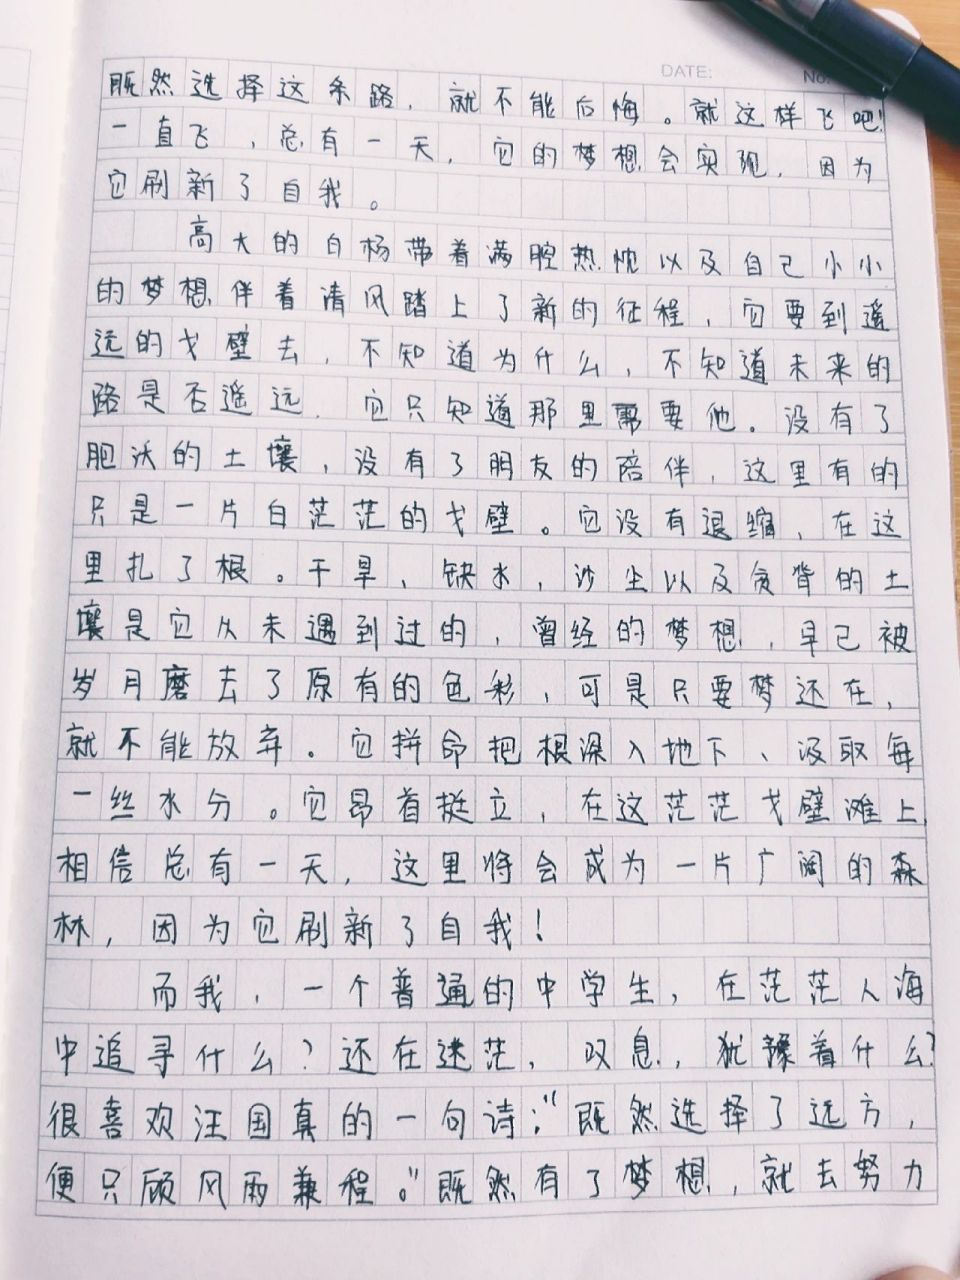 DATE:
No.
既然选择这条路，就不能后悔。就这样飞吧！
一直飞，总有一天，它的梦想会实现，因为
它刷新了自我。
高大的白杨带着满腔热忱以及自己小小
的梦想伴着清风踏上了新的征程，它要到遥
远的戈壁去，不知道为什么，不知道未来的
路是否遥远，它只知道那里需要他。没有了
肥沃的土壤，没有了朋友的陪伴，这里有的
只是一片白茫茫的戈壁。它没有退缩，在这
里扎了根。干旱、缺水，沙尘以及贪背的土
壤是它从未遇到过的，曾经的梦想，早已被
岁月磨去了原有的色彩，可是只要梦还在，
就不能放弃。它拼命把根深入地下、汲取每
一丝水分。它昂着挺立，在这茫茫戈壁滩上，
相信总有一天，这里将会成为一片广阔的森
林，因为它刷新了自我！
而我，一个普通的中学生，在茫茫人海
中追寻什么？还在迷茫，叹息，犹豫着什么？
很喜欢汪国真的一句诗：“既然选择了远方，
便只顾风雨兼程。”既然有了梦想，就去努力